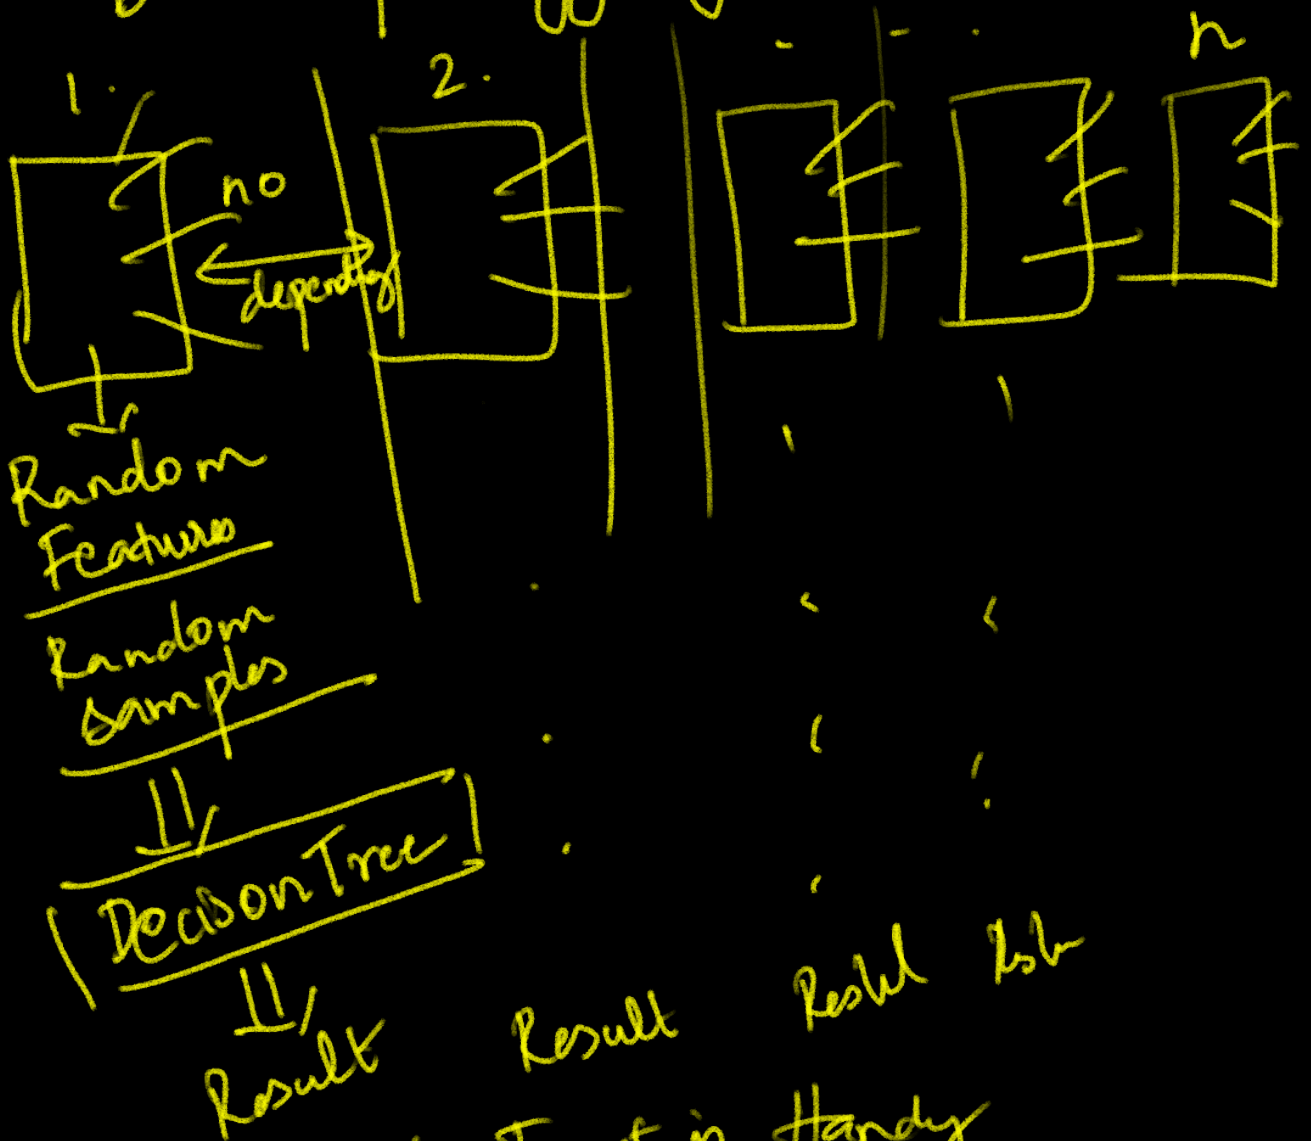 1. 2. - - . n
no
dependency
Random
Features
Random
samples
Decision Tree
Result Result Result
in Handy